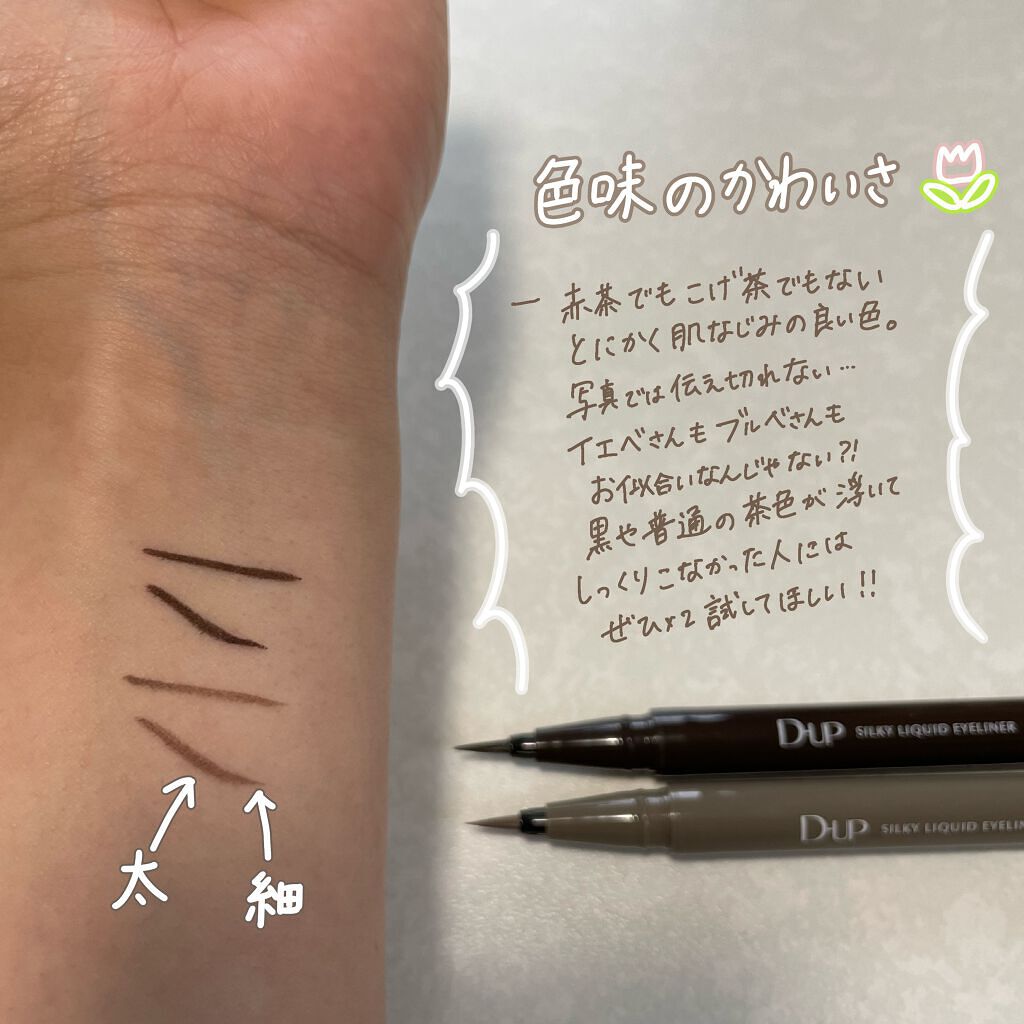 色味のかわいさ
ー 赤茶でもこげ茶でもない
とにかく肌なじみの良い色。
写真では伝え切れない…
イエベさんもブルベさんも
お似合いなんじゃない?!
黒や普通の茶色が浮いて
しっくりこなかった人には
ぜひ×2試してほしい!!
D-UP SILKY LIQUID EYELINER
D-UP SILKY LIQUID EYELIN
太
細